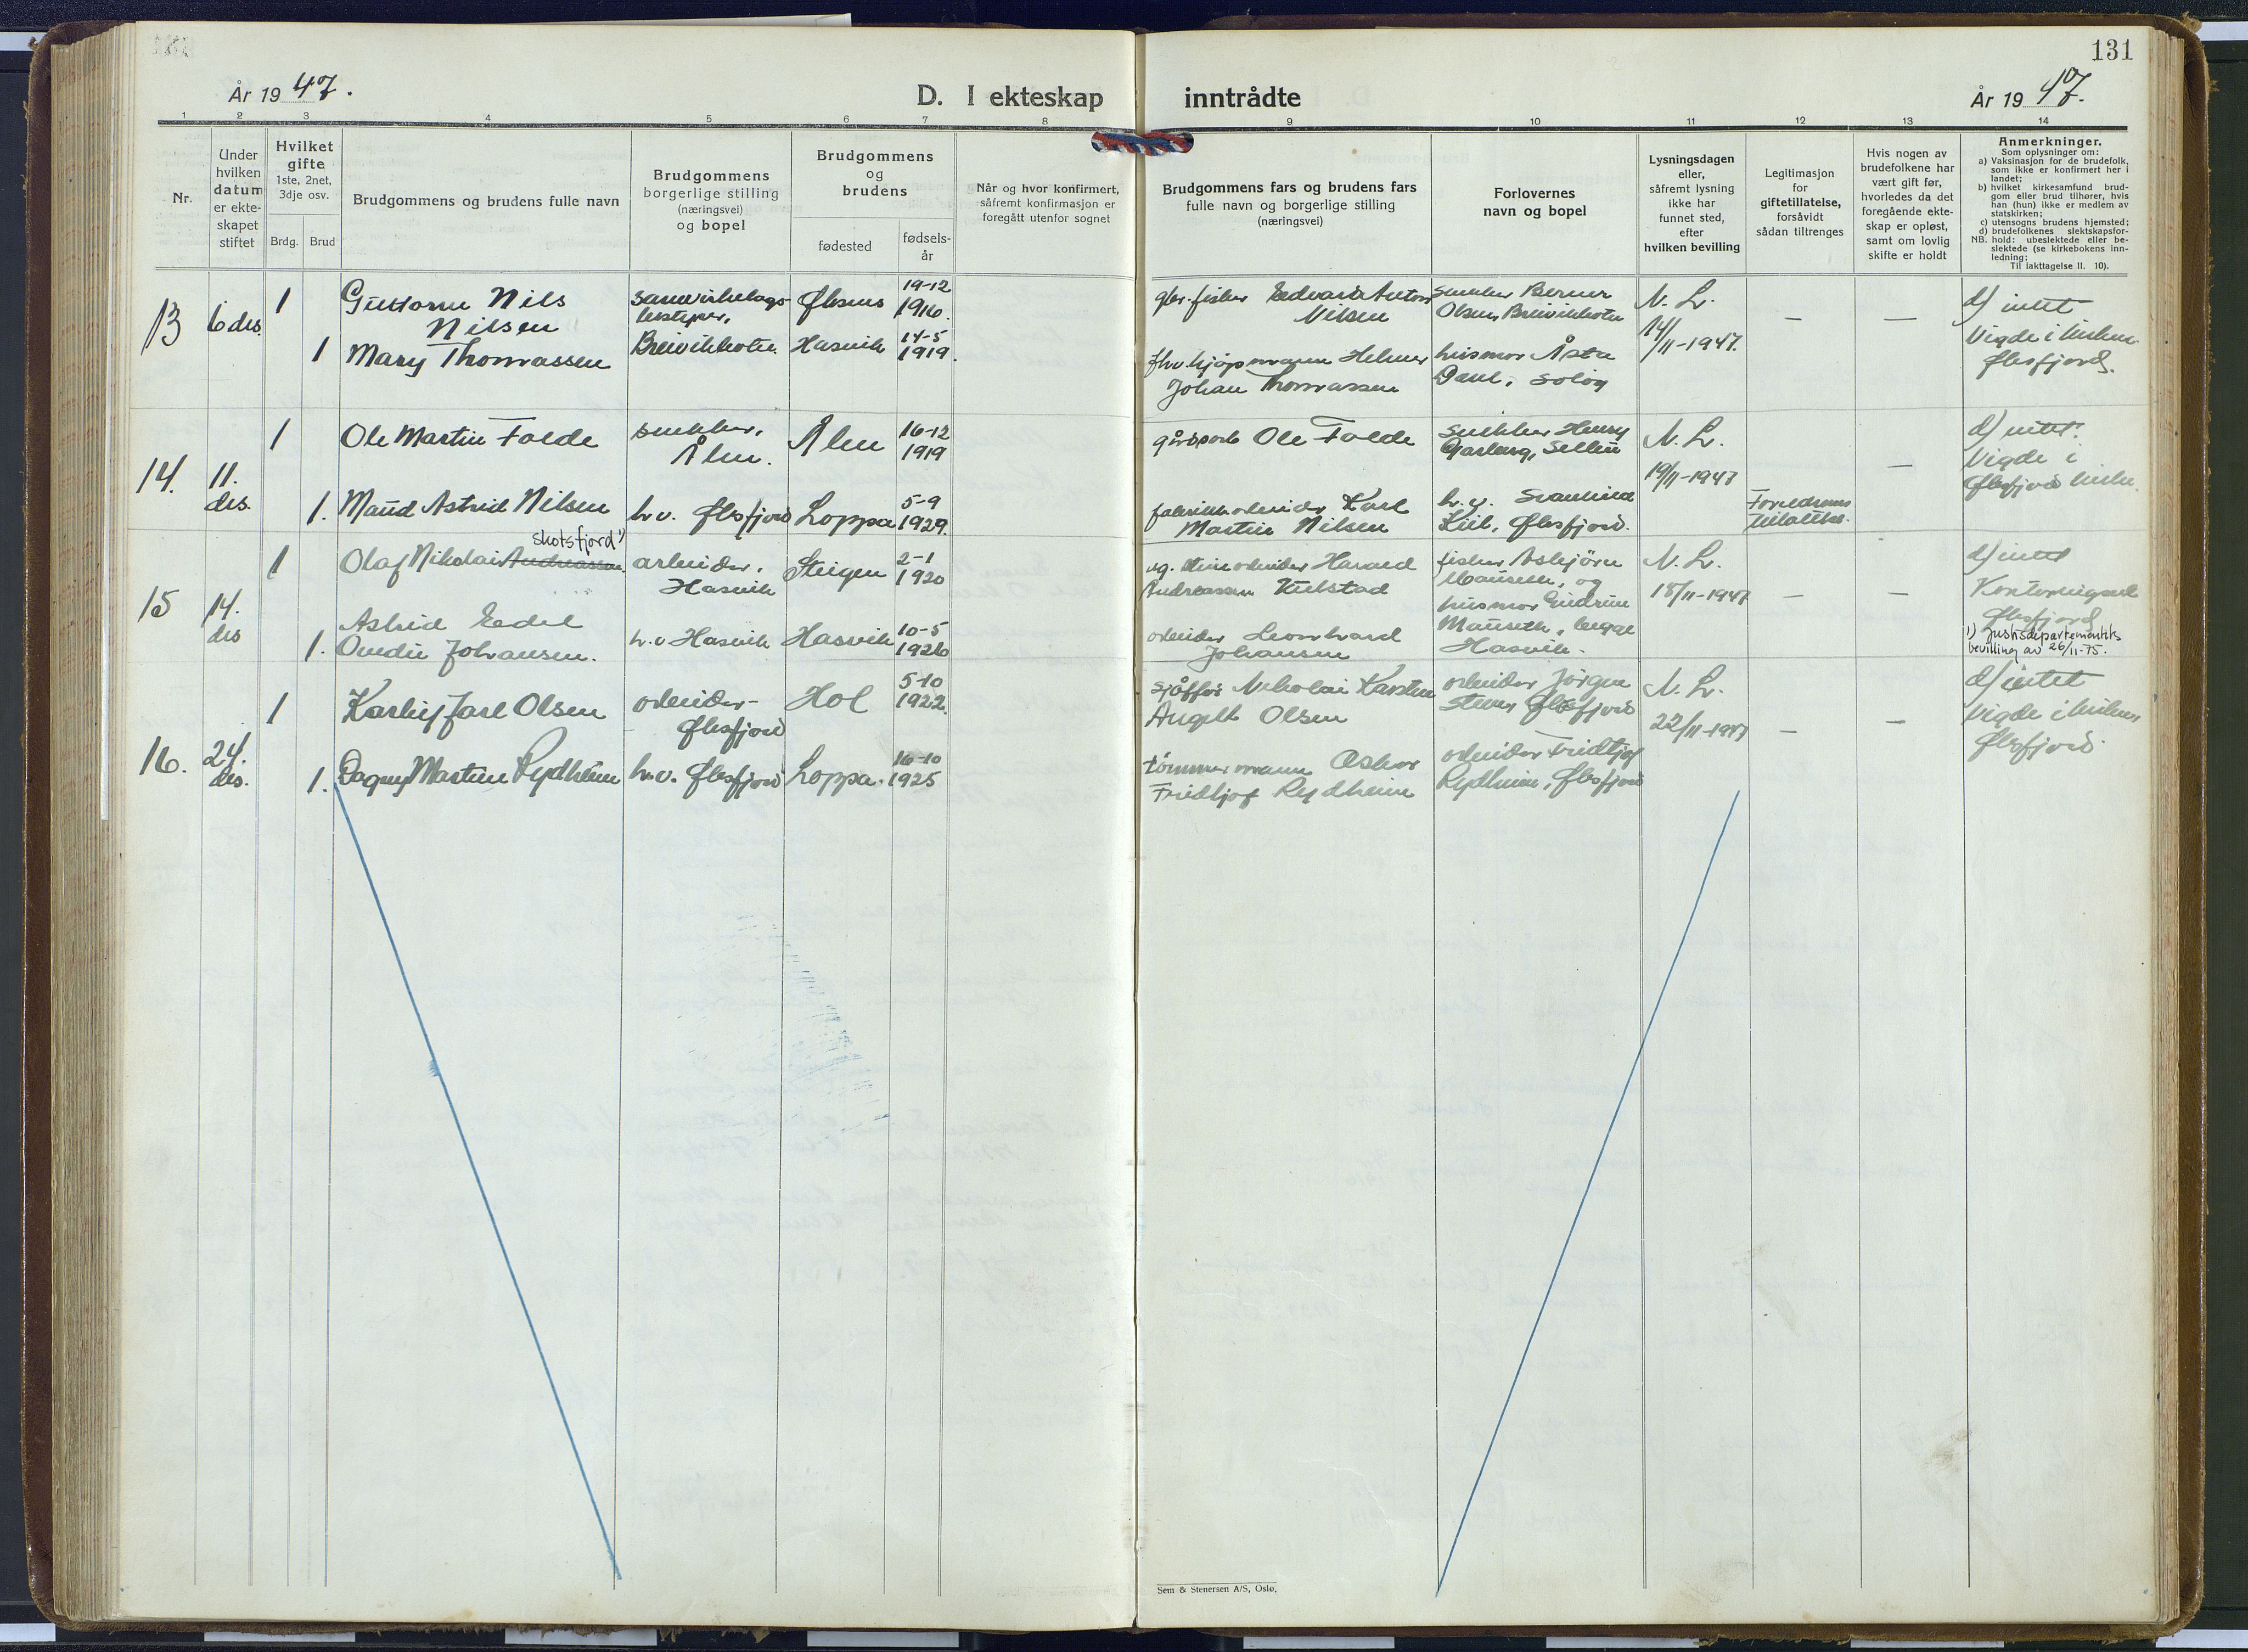 131
År 19 47.
D. I ekteskap inntrådte
År 19 47.
1 2 3 4 5 6 7 8 9 10 11 12 13 14
Nr.
Under
hvilken
datum
er ekte-
skapet
stiftet
Hvilket
gifte
1ste, 2net,
3dje osv.
Brdg. Brud
Brudgommens og brudens fulle navn
Brudgommens
borgerlige stilling
(næringsvei)
og bopel
Brudgommens
og
brudens
fødested
fødsels-
år
Når og hvor konfirmert,
såfremt konfirmasjon er
foregått utenfor sognet
Brudgommens fars og brudens fars
fulle navn og borgerlige stilling
(næringsvei)
Forlovernes
navn og bopel
Lysningsdagen
eller,
såfremt lysning
ikke har
funnet sted,
efter
hvilken bevilling
Legitimasjon
for
giftetillatelse,
forsåvidt
sådan tiltrenges
Hvis nogen av
brudefolkene har
vært gift før,
hvorledes da det
foregående ekte-
skap er opløst,
samt om lovlig
skifte er holdt
Anmerkninger.
Som oplysninger om:
a) Vaksinasjon for de brudefolk,
som ikke er konfirmert her i
landet;
b) hvilket kirkesamfund brud-
gom eller brud tilhører, hvis
han (hun) ikke er medlem av
statskirken;
c) utensogns brudens hjemsted;
d) brudefolkenes slektskapsfor-
NB. hold: ubeslektede eller be-
slektede (se kirkebokens inn-
ledning;
Til iakttagelse II. 10).
13
6 des.
1
Nils
Nilsen
samvirkelags-
bestyrer,
Øksnes
19-12
1916.
gbr. fisker Edvard Anton
Nilsen
snekker Berner
Olsen, Breivikbotn
N. L.
14/11-1947.
—
—
d) intet
Vigde i kirken
Øksfjord.
1
Mary Thomassen
Breivikbotn.
Hasvik
14-5
1919.
fhv. kjøpmann Helmer
Johan Thomassen
husmor Åsta
14.
11.
des.
1
Ole Martin Folde
snekker,
Ålen.
Ålen
16-12
1919
Ole Folde
snekker Henry
N. L.
19/11-1947
—
d) intet.
Vigde i
Øksfjord kirke.
1.
Maud Astrid Nilsen
h.v. Øksfjord
Loppa
5-9
1929.
fabrikkarbeider Karl
Martin Nilsen
h.v.
Kiil, Øksfjord.
Foreldrenes
tillatelse.
15
14.
des
1
Skotsfjord 1)
Olaf Nikolai Andreassen.
arbeider,
Hasvik
Steigen
2-1
1920
Harald
Andreassen
fisker Asbjørn
Mauseth, og
husmor Gudrun
Mauseth, begge
Hasvik.
N. L.
18/11-1947
—
—
d) intet
Øksfjord
1) Justisdepartementets
bevilling av 26/11-75.
1.
Astrid Edel
Johansen.
h.v. Hasvik
Hasvik
10-5
1926
arbeider
Johansen
16.
24.
des.
1
Jarl Olsen
arbeider-
Øksfjord
Hol
5-10
1922.
Nikolai Karsten
Angelt Olsen
arbeider Jørgen
Øksfjord
N. L.
22/11-1947
—
—
d) intet
Vigde i kirken
Øksfjord.
1.
Dagny Martine Rydheim
h.v. Øksfjord
Loppa.
16-10
1925
tømmermann Oskar
Fridtjof Rydheim
arbeider Fridtjof
Rydheim, Øksfjord
Sem & Stenersen A/S, Oslo.